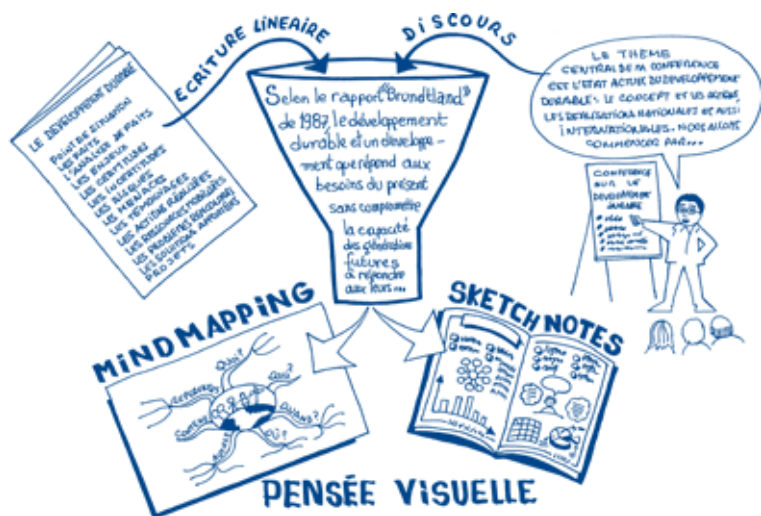 ECRITURE LINEAIRE
DISCOURS
LE DÉVELOPPEMENT DURABLE
POINT DE SITUATION
LES FAITS
L'ANALYSE DE FAITS
LES ENJEUX
LES CERTITUDES
LES INCERTITUDES
LES RISQUES
LES MENACES
LES TÉMOIGNAGES
LES ACTIONS RÉALISÉES
LES RESSOURCES MOBILISÉES
LES PROBLÈMES RENCONTRÉS
LES SOLUTIONS APPORTÉES
PROJETS
Selon le rapport "Brundtland"
de 1987, le développement
durable et un développe-
ment que répond aux
besoins du présent
sans compromettre
la capacité
des générations
futures
à répondre
aux leurs...
LE THÈME
CENTRAL DE MA CONFERENCE
EST L'ETAT ACTUEL DU DEVELOPPEMENT
DURABLE: LE CONCEPT ET LES ACTEURS,
LES REALISATIONS NATIONALES ET AUSSI
INTERNATIONALES. NOUS ALLONS
COMMENCER PAR...
CONFERENCE
SUR LE
DEVELOPPEMENT
DURABLE
MIND MAPPING
QUOI?
QUAND?
SKETCHNOTES
PENSÉE VISUELLE